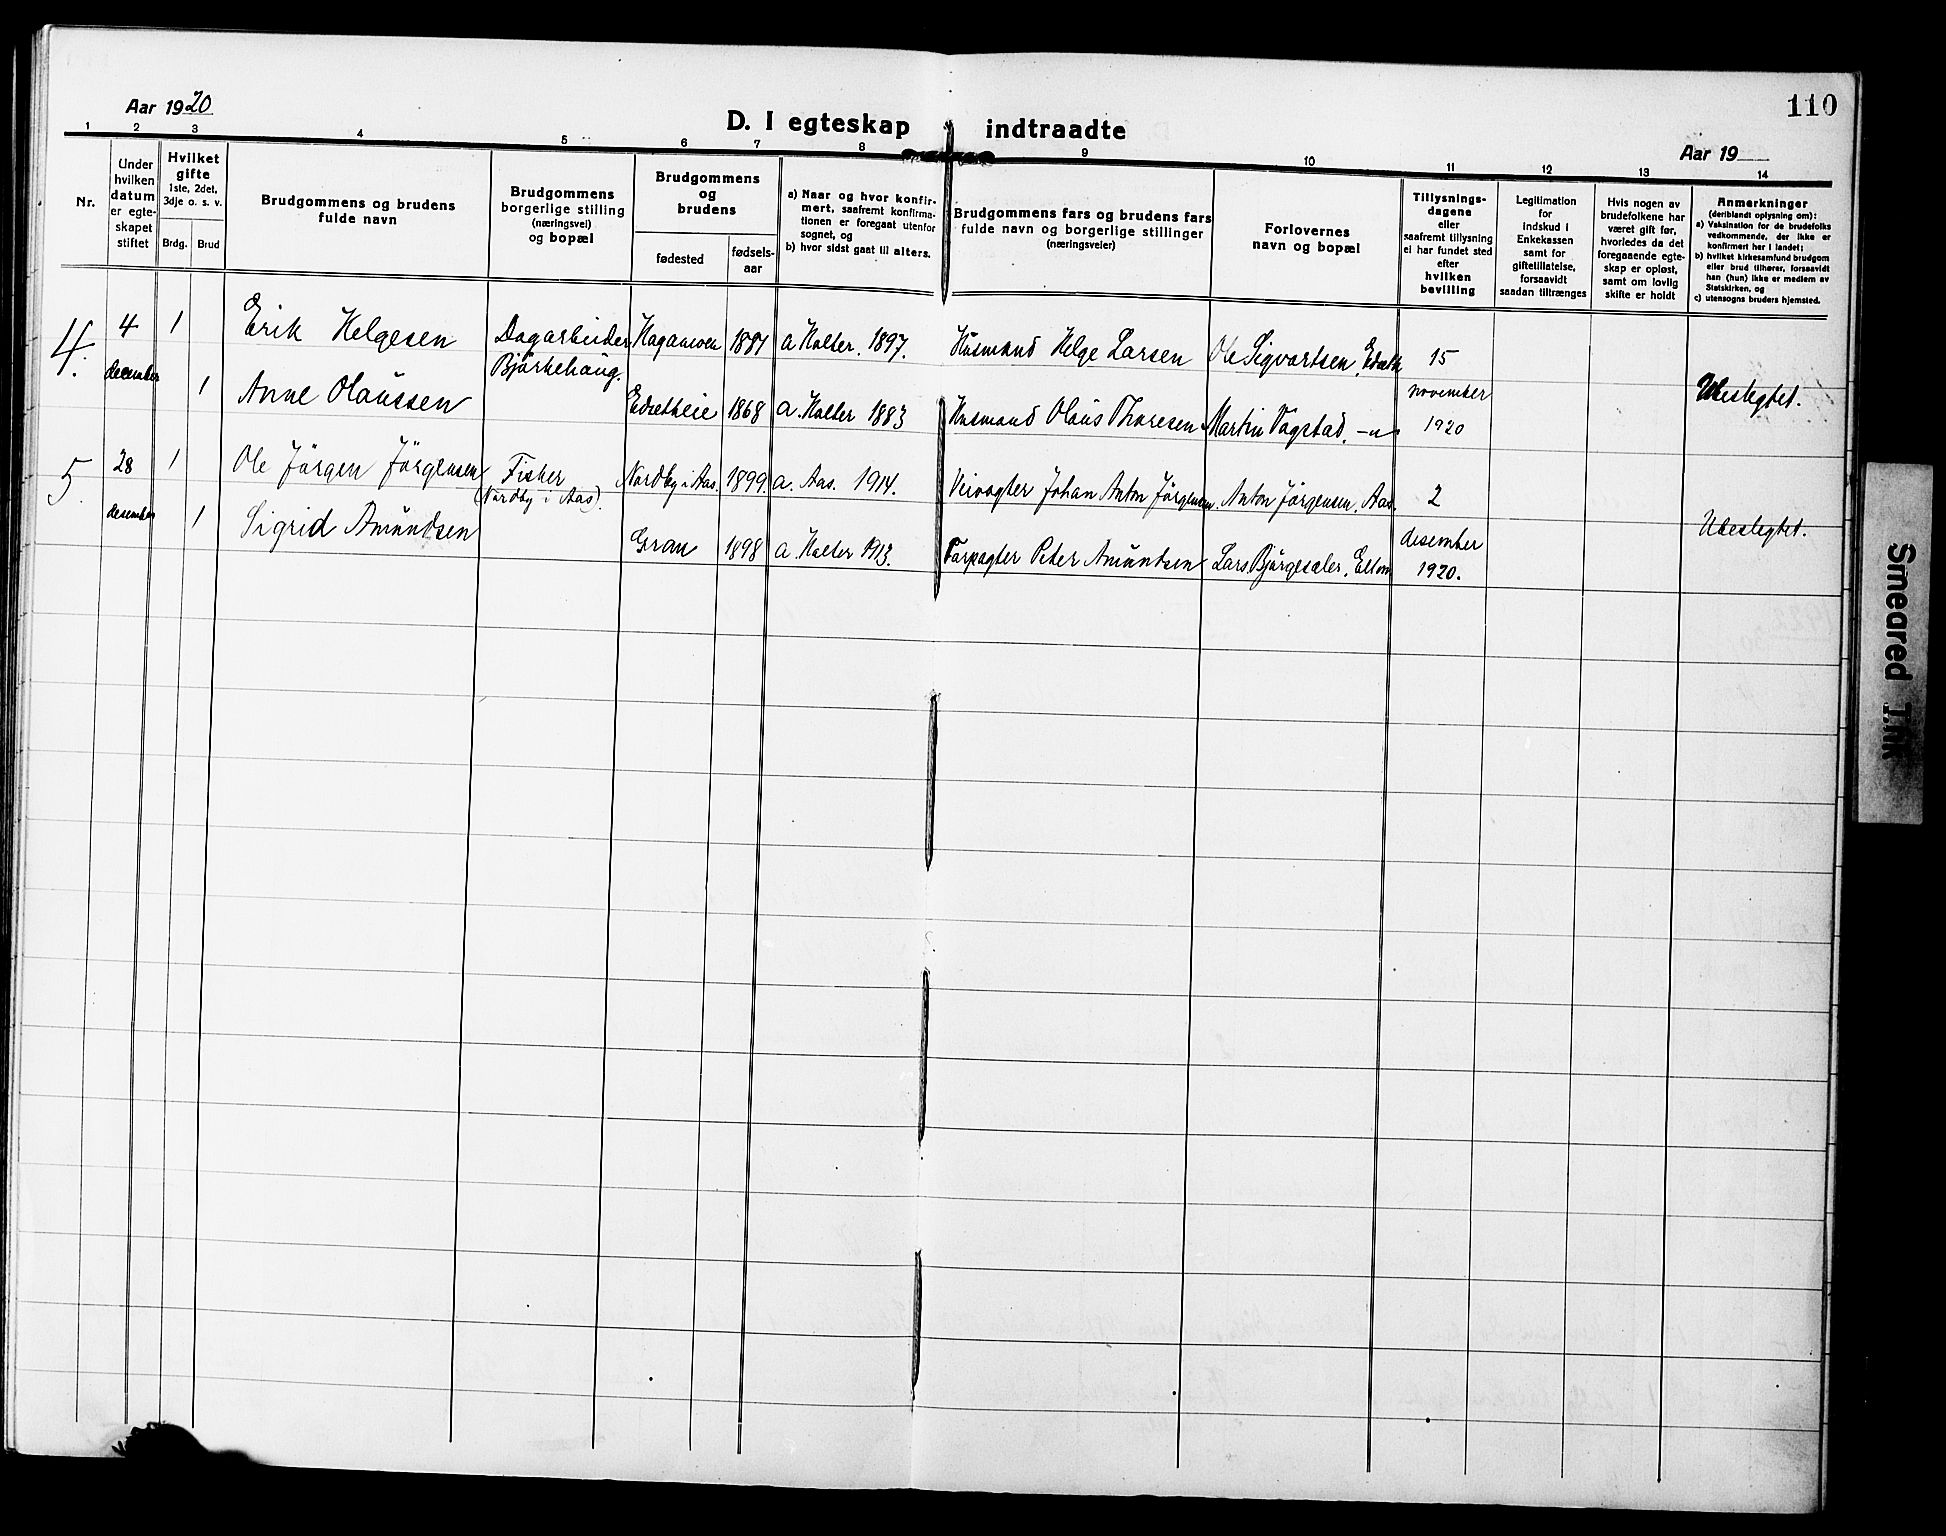 Aar 1920
D. I egteskap indtraadte
110
Aar 19
1 2 3 4 5 6 7 8 9 10 11 12 13 14
Nr.
Under
hvilken
datum
er egte-
skapet
stiftet
Hvilket
gifte
1ste, 2det,
3dje o. s. v.
Brdg. Brud
Brudgommens og brudens
fulde navn
Brudgommens
borgerlige stilling
(næringsvei)
og bopæl
Brudgommens
og
brudens
fødested
fødsels-
aar
a) Naar og hvor konfir-
mert, saafremt konfirma-
tionen er foregaat utenfor
sognet, og
b) hvor sidst gaat til alters.
Brudgommens fars og brudens fars
fulde navn og borgerlige stillinger
(næringsveier)
Forlovernes
navn og bopæl
Tillysnings-
dagene
eller
saafremt tillysning
ei har fundet sted
efter
hvilken
bevilling
Legitimation
for
indskud i
Enkekassen
samt for
giftetillatelse,
forsaavidt
saadan tiltrænges
Hvis nogen av
brudefolkene har
været gift før,
hvorledes da det
foregaaende egte-
skap er opløst,
samt om lovlig
skifte er holdt
Anmerkninger
(deriblandt oplysning om):
a) Vaksination for de brudefolks
vedkommende, der ikke er
konfirmert her i landet;
b) hvilket kirkesamfund brudgom
eller brud tilhører, forsaavidt
han (hun) ikke er medlem av
Statskirken, og
c) utensogns bruders hjemsted.
4. 4 december 1 Erik Helgesen Dagarbeider Björkehaug. a Holter. 1897. Husmand Helge Larsen Ole Sigvartsen, 15 november 1920
1 Anne Olaussen 1868 a. Holter 1883 Husmand Olaus Thoresen Martin Vagstad, -"- Ubeslegtet.
5. 28 desember 1 Ole Jörgen Jörgensen Fisker (Nordby i Aas). Nordby i Aas. 1899. a. Aas. 1914. Veivogter Johan Anton Jörgensen. Anton Jörgensen, Aas. 2 desember 1920.
1 Sigrid Amundsen Gran 1898 a. Holter 1913. Forpagter Peter Amundsen Lars Ubeslegtet.
Smeared Ink